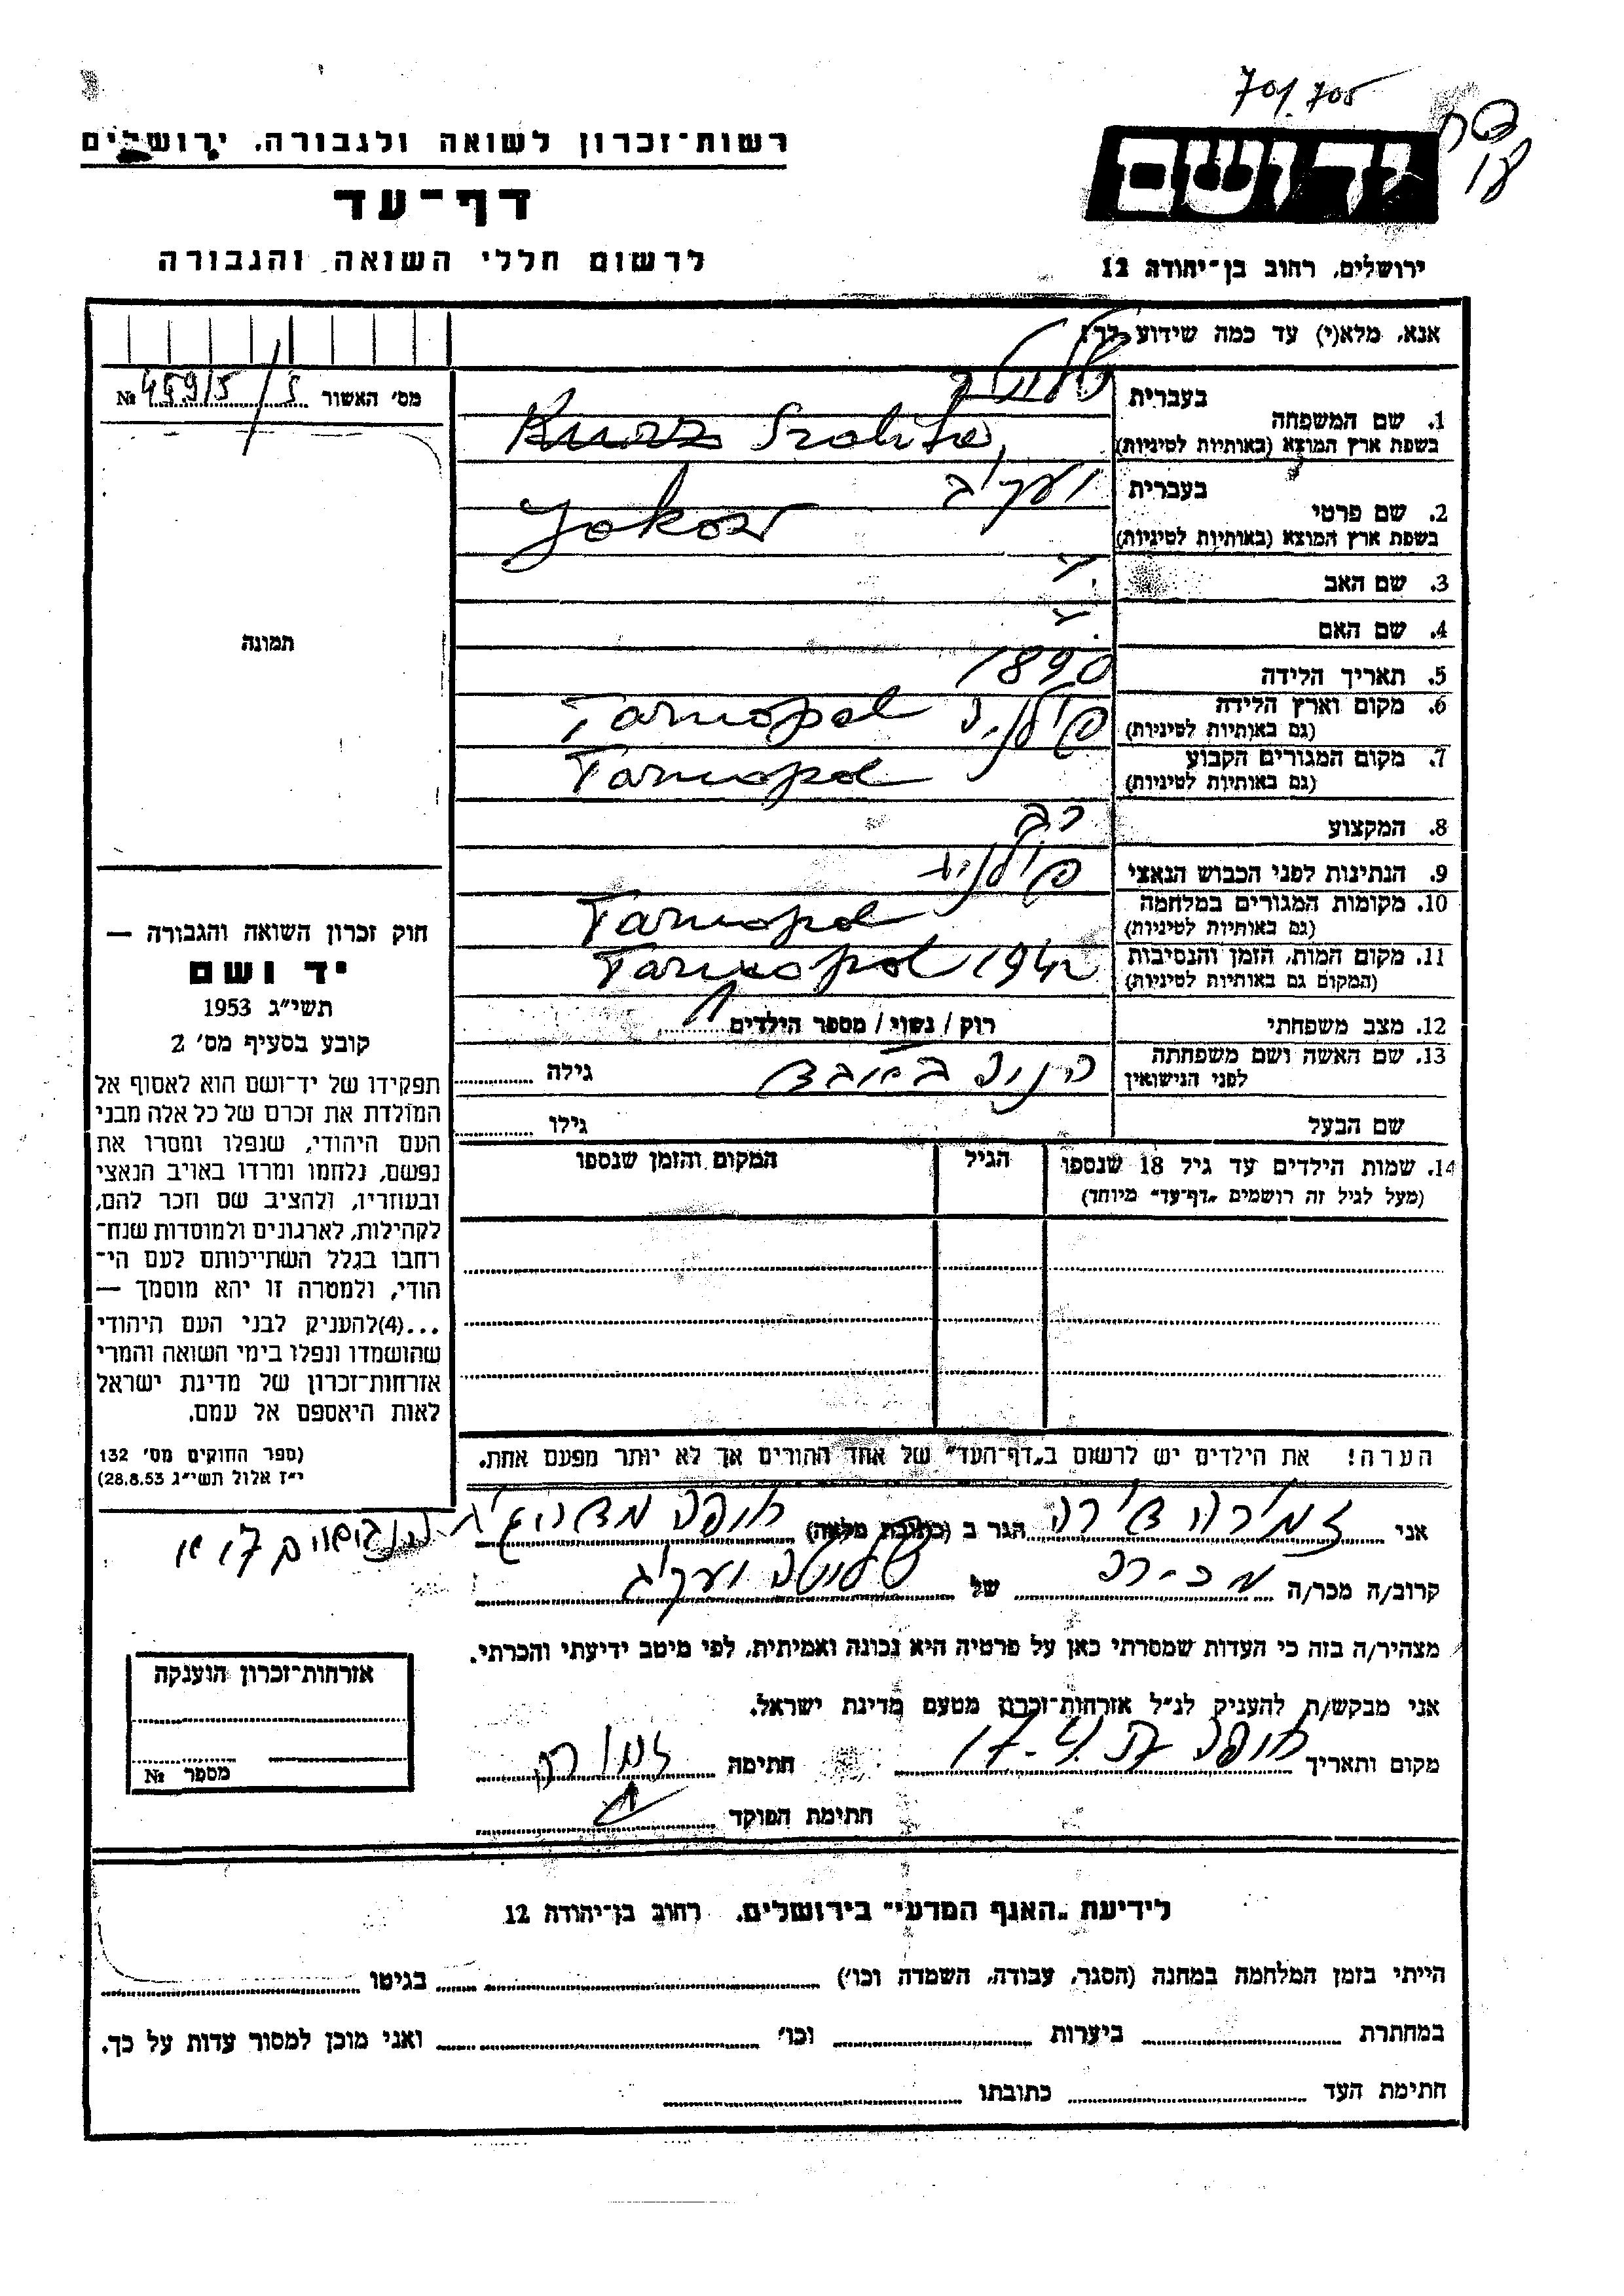 701/705
רשות־זכרון לשואה ולגבורה, ירושלים
יד ושם
דף־עד
לרשום חללי השואה והגבורה
ירושלים, רחוב בן־יהודה 12
אנא, מלא(י) עד כמה שידוע לך!
מס׳ האשור № 459/5
1. שם המשפחה
בעברית
בשפת ארץ המוצא (באותיות לטיניות) Kurz
2. שם פרטי
בעברית יעקב
בשפת ארץ המוצא (באותיות לטיניות) Jokow
3. שם האב
4. שם האם
תמונה
5. תאריך הלידה 1890
6. מקום וארץ הלידה פולניה Tarnopol
(גם באותיות לטיניות)
7. מקום המגורים הקבוע Tarnopol
(גם באותיות לטיניות)
8. המקצוע רב
9. הנתינות לפני הכבוש הנאצי פולנית
10. מקומות המגורים במלחמה Tarnopol
(גם באותיות לטיניות)
11. מקום המות, הזמן והנסיבות Tarnopol 1942
(המקום גם באותיות לטיניות)
12. מצב משפחתי רוק / נשוי / מספר הילדים
13. שם האשה ושם משפחתה
לפני הנישואין
גילה
שם הבעל
גילו
14. שמות הילדים עד גיל 18 שנספו
(מעל לגיל זה רושמים „דף־עד” מיוחד)
הגיל
המקום והזמן שנספו
חוק זכרון השואה והגבורה —
יד ושם
תשי״ג 1953
קובע בסעיף מס׳ 2
תפקידו של יד־ושם הוא לאסוף אל
המולדת את זכרם של כל אלה מבני
העם היהודי, שנפלו ומסרו את
נפשם, נלחמו ומרדו באויב הנאצי
ובעוזריו, ולהציב שם וזכר להם,
לקהילות, לארגונים ולמוסדות שנח־
רחבו בגלל השתייכותם לעם הי־
הודי, ולמטרה זו יהא מוסמך —
...(4)להעניק לבני העם היהודי
שהושמדו ונפלו בימי השואה והמרי
אזרחות־זכרון של מדינת ישראל
לאות היאספם אל עמם.
(ספר החוקים מס׳ 132
י״ז אלול תשי״ג 28.8.53)
הערה! את הילדים יש לרשום ב„דף־העד” של אחד ההורים אך לא יותר מפעם אחת.
אני הגר ב (כתובת מלאה) חיפה
קרוב/ה מכר/ה של יעקב
מצהיר/ה בזה כי העדות שמסרתי כאן על פרטיה היא נכונה ואמיתית, לפי מיטב ידיעתי והכרתי.
אני מבקש/ת להעניק לנ״ל אזרחות־זכרון מטעם מדינת ישראל.
מקום ותאריך חיפה חתימה
חתימת הפוקד
אזרחות־זכרון הוענקה
מספר №
לידיעת „האגף המדעי” בירושלים, רחוב בן־יהודה 12
הייתי בזמן המלחמה במחנה (הסגר, עבודה, השמדה וכו׳) בגיטו
במחתרת ביערות וכו׳ ואני מוכן למסור עדות על כך.
חתימת העד כתובתו